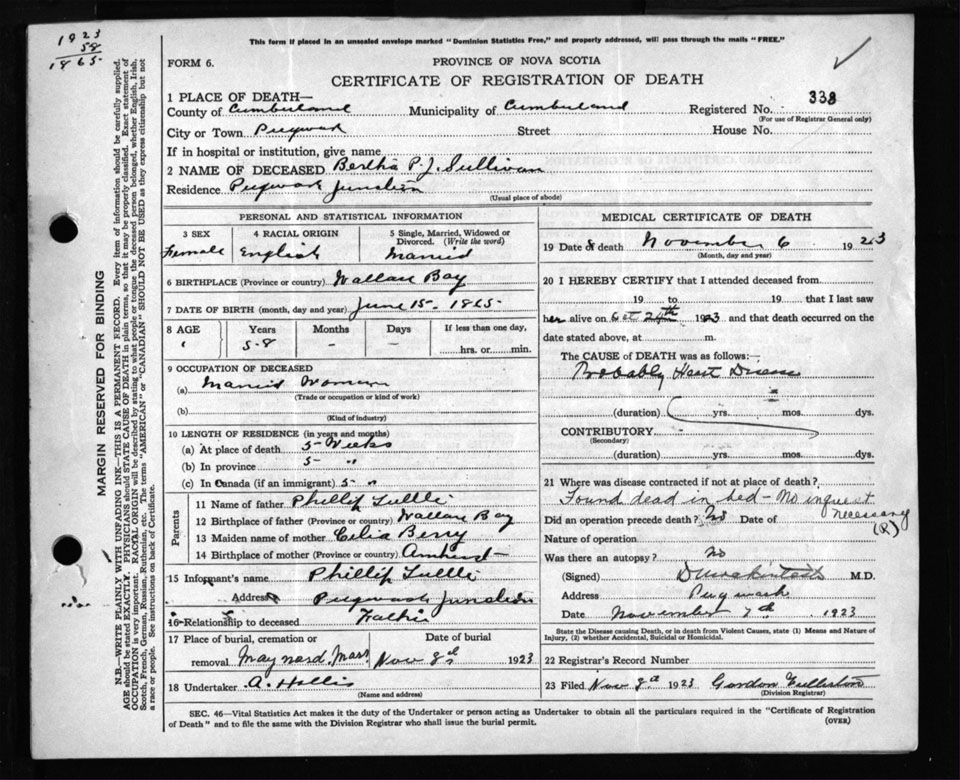 1923
58
1865
This form if placed in an unsealed envelope marked "Dominion Statistics Free," and properly addressed, will pass through the mails "FREE."
FORM 6.
PROVINCE OF NOVA SCOTIA
CERTIFICATE OF REGISTRATION OF DEATH
1 PLACE OF DEATH—
County of Cumberland Municipality of Cumberland Registered No. 338
(For use of Registrar General only)
City or Town Pugwash Street House No.
If in hospital or institution, give name
2 NAME OF DECEASED Bertha P. J. Sullivan
Residence Pugwash Junction
(Usual place of abode)
PERSONAL AND STATISTICAL INFORMATION
3 SEX 4 RACIAL ORIGIN 5 Single, Married, Widowed or Divorced. (Write the word)
Female English Married
6 BIRTHPLACE (Province or country) Wallace Bay
7 DATE OF BIRTH (month, day and year) June 15 - 1865
8 AGE Years Months Days If less than one day,
" 58 — — hrs. or min.
9 OCCUPATION OF DECEASED
(a) Married Woman
(Trade or occupation or kind of work)
(b)
(Kind of industry)
10 LENGTH OF RESIDENCE (in years and months)
(a) At place of death 5 Weeks
(b) In province 5 "
(c) In Canada (if an immigrant) 5 "
Parents
11 Name of father Phillip
12 Birthplace of father (Province or country) Wallace Bay
13 Maiden name of mother Celia Berry
14 Birthplace of mother (Province or country) Amherst
15 Informant's name Phillip
Address Pugwash Junction
16 Relationship to deceased Father
17 Place of burial, cremation or removal Maynard, Mass Date of burial Nov 8th 1923
18 Undertaker A. Hollis
(Name and address)
MEDICAL CERTIFICATE OF DEATH
19 Date of death November 6 1923
(Month, day and year)
20 I HEREBY CERTIFY that I attended deceased from
19 to 19 that I last saw
her alive on Oct 24th 1923 and that death occurred on the
date stated above, at m.
The CAUSE of DEATH was as follows:—
Probably Heart Disease
(duration) yrs. mos. dys.
CONTRIBUTORY
(Secondary)
(duration) yrs. mos. dys.
21 Where was disease contracted if not at place of death?
Found dead in bed - No inquest necessary (R)
Did an operation precede death? No Date of
Nature of operation
Was there an autopsy? No
(Signed) M.D.
Address Pugwash
Date November 7th 1923
State the Disease causing Death, or in death from Violent Causes, state (1) Means and Nature of
Injury, (2) whether Accidental, Suicidal or Homicidal.
22 Registrar's Record Number
23 Filed Nov 8th 1923 Gordon
(Division Registrar)
SEC. 46—Vital Statistics Act makes it the duty of the Undertaker or person acting as Undertaker to obtain all the particulars required in the "Certificate of Registration
of Death" and to file the same with the Division Registrar who shall issue the burial permit.
(OVER)
MARGIN RESERVED FOR BINDING
N.B.—WRITE PLAINLY WITH UNFADING INK—THIS IS A PERMANENT RECORD. Every item of information should be carefully supplied.
AGE should be stated EXACTLY. PHYSICIANS should STATE CAUSE OF DEATH in plain terms, so that it may be properly classified. Exact statement of
OCCUPATION is very important. RACIAL ORIGIN will be described by stating to what people or tongue the deceased person belonged, whether English, Irish,
Scotch, French, German, Russian, Ruthenian, etc. The terms "AMERICAN" or "CANADIAN" SHOULD NOT BE USED as they express citizenship but not
a race or people. See instructions on back of Certificate.